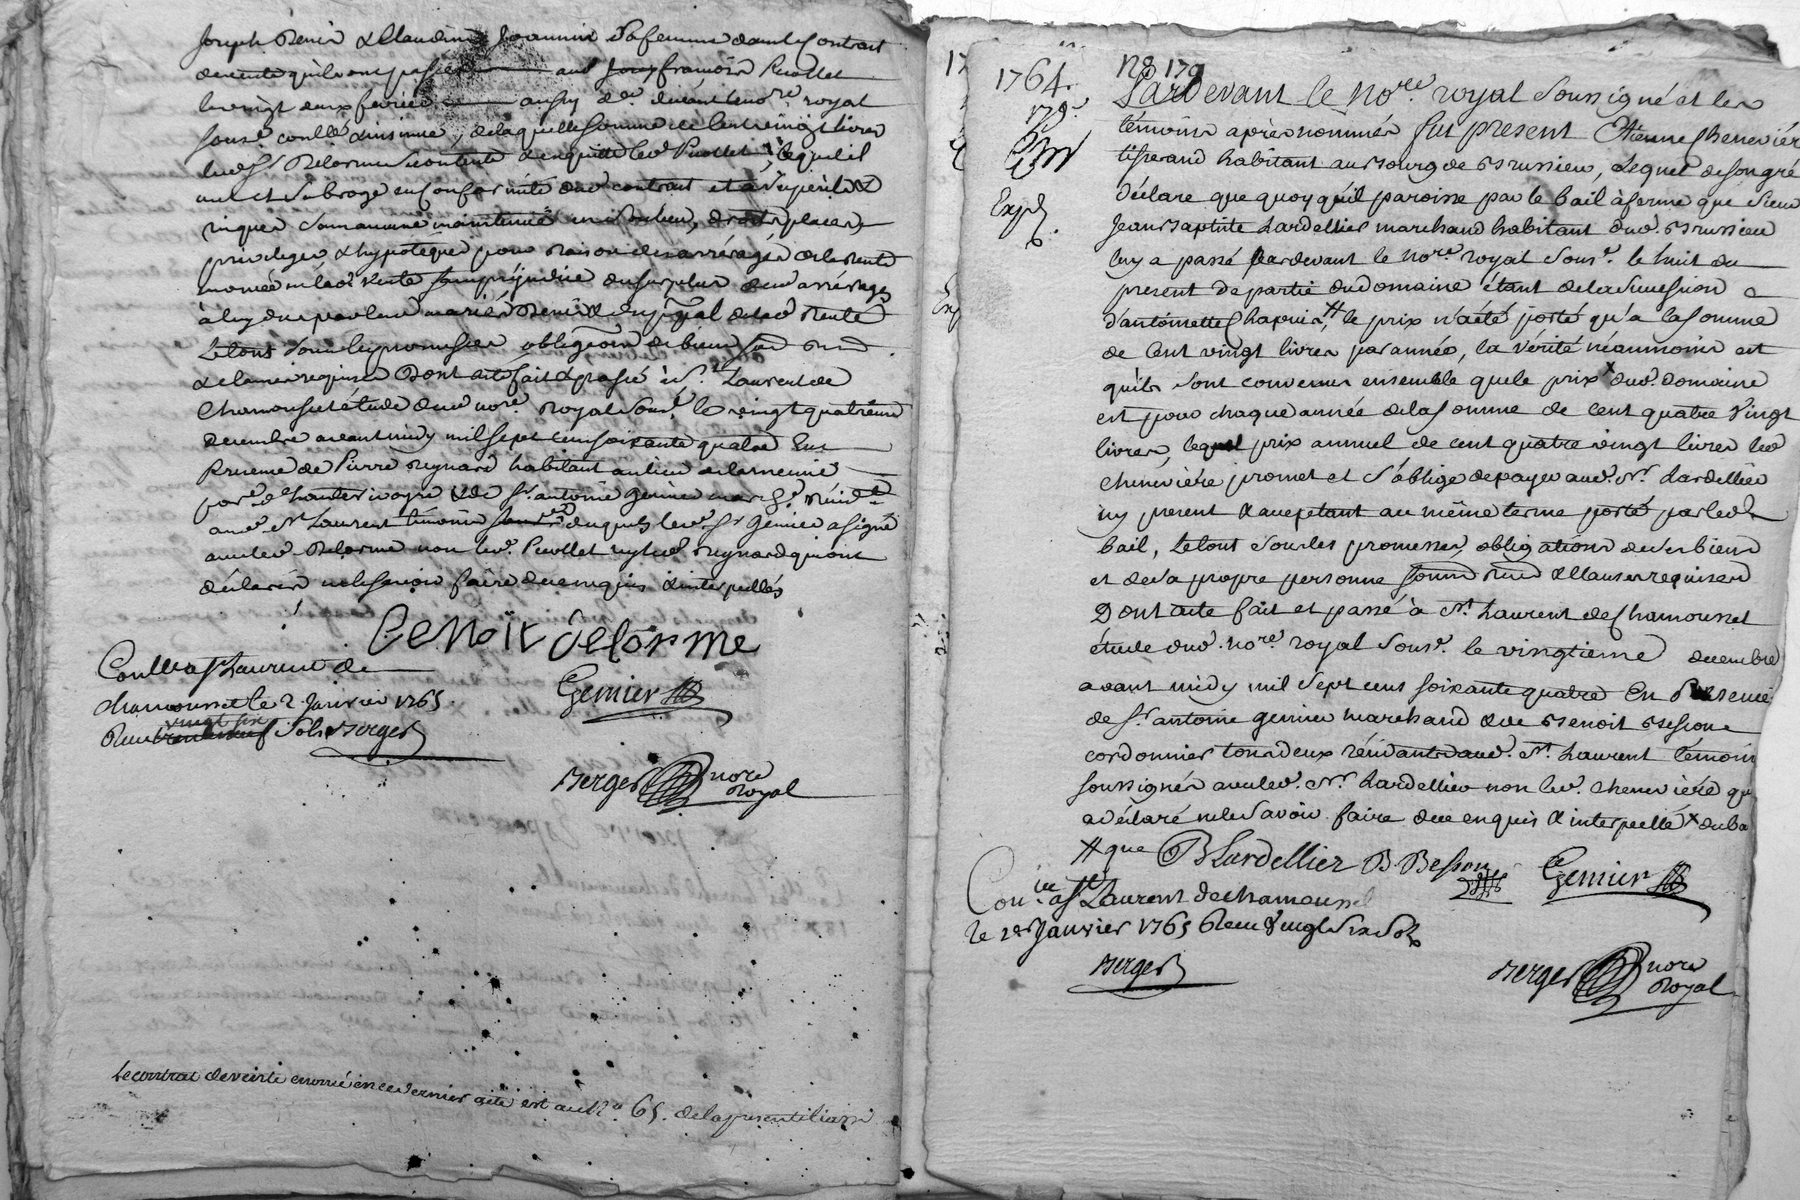 Joseph Benier & Claudine Joannin Sa femme dans le Contrat
de vente qu'ils ont passé aud françois Puollet
le vingt deux fevrier aussy de. devant le nore. royal
sousé. Conllé & insinué, de laquelle somme de Cent vingt livres
led. Delorme Se contente & en quitte led. Puollet, lequel il
met et Subroge en Conformité dud contrat et à Ses périls &
risques Sans aucune maintenüe en Son lieu, droits, places,
privileges & hypoteques pour raison des arrérages de la rente
enoncée en lad. vente sans préjudice du surplus desd arrérages
à luy dus par lesd mariés Benier & du ppal de lad Rente
Le tout Sous les promesses obligeons de biens
& clauses requises Dont acte fait & passé à St. Laurent de
Chamousset étude dud nore. Royal Sousé. le vingt quatrieme
Decembre avant midy mil Sept Cens Soixante quatre En
Presence de Pierre Reynard habitant au lieu de la meunie
parse. de hauterivoyre & de Sr. antoine Genier march. résidt.
aud. St. Laurent témoins enquis led. Sr Genier a signé
avec led. Delorme non led. Puollet ny led. Reynard qui ont
déclaré ne le Savoir faire de ce enquis & interpellés
Benoit delorme
Conllé a St Laurent de
chamousset le 2 Janvier 1765.
vingt six
Reçu Sols Berger
Genier
Berger nore
Royal
Le contrat de vente enoncé en ce dernier acte est au No. 65. de la presente liasse
1764. No 179
179e.
Con
Exp.
Pardevant le nore. royal Soussigné et les
témoins après nommés fut present Etienne Chenevier
tisserand habitant au Bourg de Brussieu, Lequel de son gré
déclare que quoy qu'il paroisse par le bail à ferme que Sieur
Jean Baptiste Lardellier marchand habitant dud. Brussieu
luy a passé pardevant le nore. royal Sousé. le huit du
present de partie du Domaine étant de la Succession
d'antoinette Chapuis, # le prix n'a été porté qu'a la Somme
de Cent vingt livres par année, la vérité néanmoins est
qu'ils sont convenus ensemble que le prix x dud. domaine
est pour chaque année de la somme de Cent quatre vingt
livres, lequel prix annuel de cent quatre vingt livres led
Chenevière promet et S'oblige de payer aud. Sr. Lardellier
icy present & acceptant au même terme porté par led.
bail, Le tout Sous les promesses, obligations de Ses biens
et de Sa propre personne & Clauses requises
Dont acte fait et passé à St. Laurent de Chamousset
étude dud. nore. royal Sousé. le vingtieme decembre
avant midy mil Sept cens soixante quatre En Presence
de Sr. antoine Genier marchand & de Benoit Besson
cordonnier tous deux résidants aud. St. Laurent témoins
soussignés avec led. Sr. Lardellier non led. Chenevière qui
a déclaré ne le Savoir faire de ce enquis & interpellé x du ba
# que B Lardellier B. Besson Genier
Conle. a St. Laurent de chamousset
le 2e Janvier 1765 Reçu vingt Six Sols
Berger
Berger nore
Royal